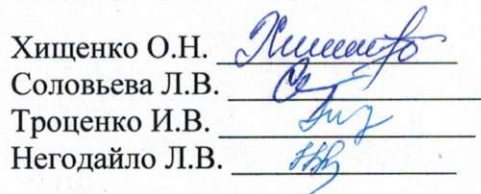 Хищенко О.Н.
Соловьева Л.В.
Троценко И.В.
Негодайло Л.В.